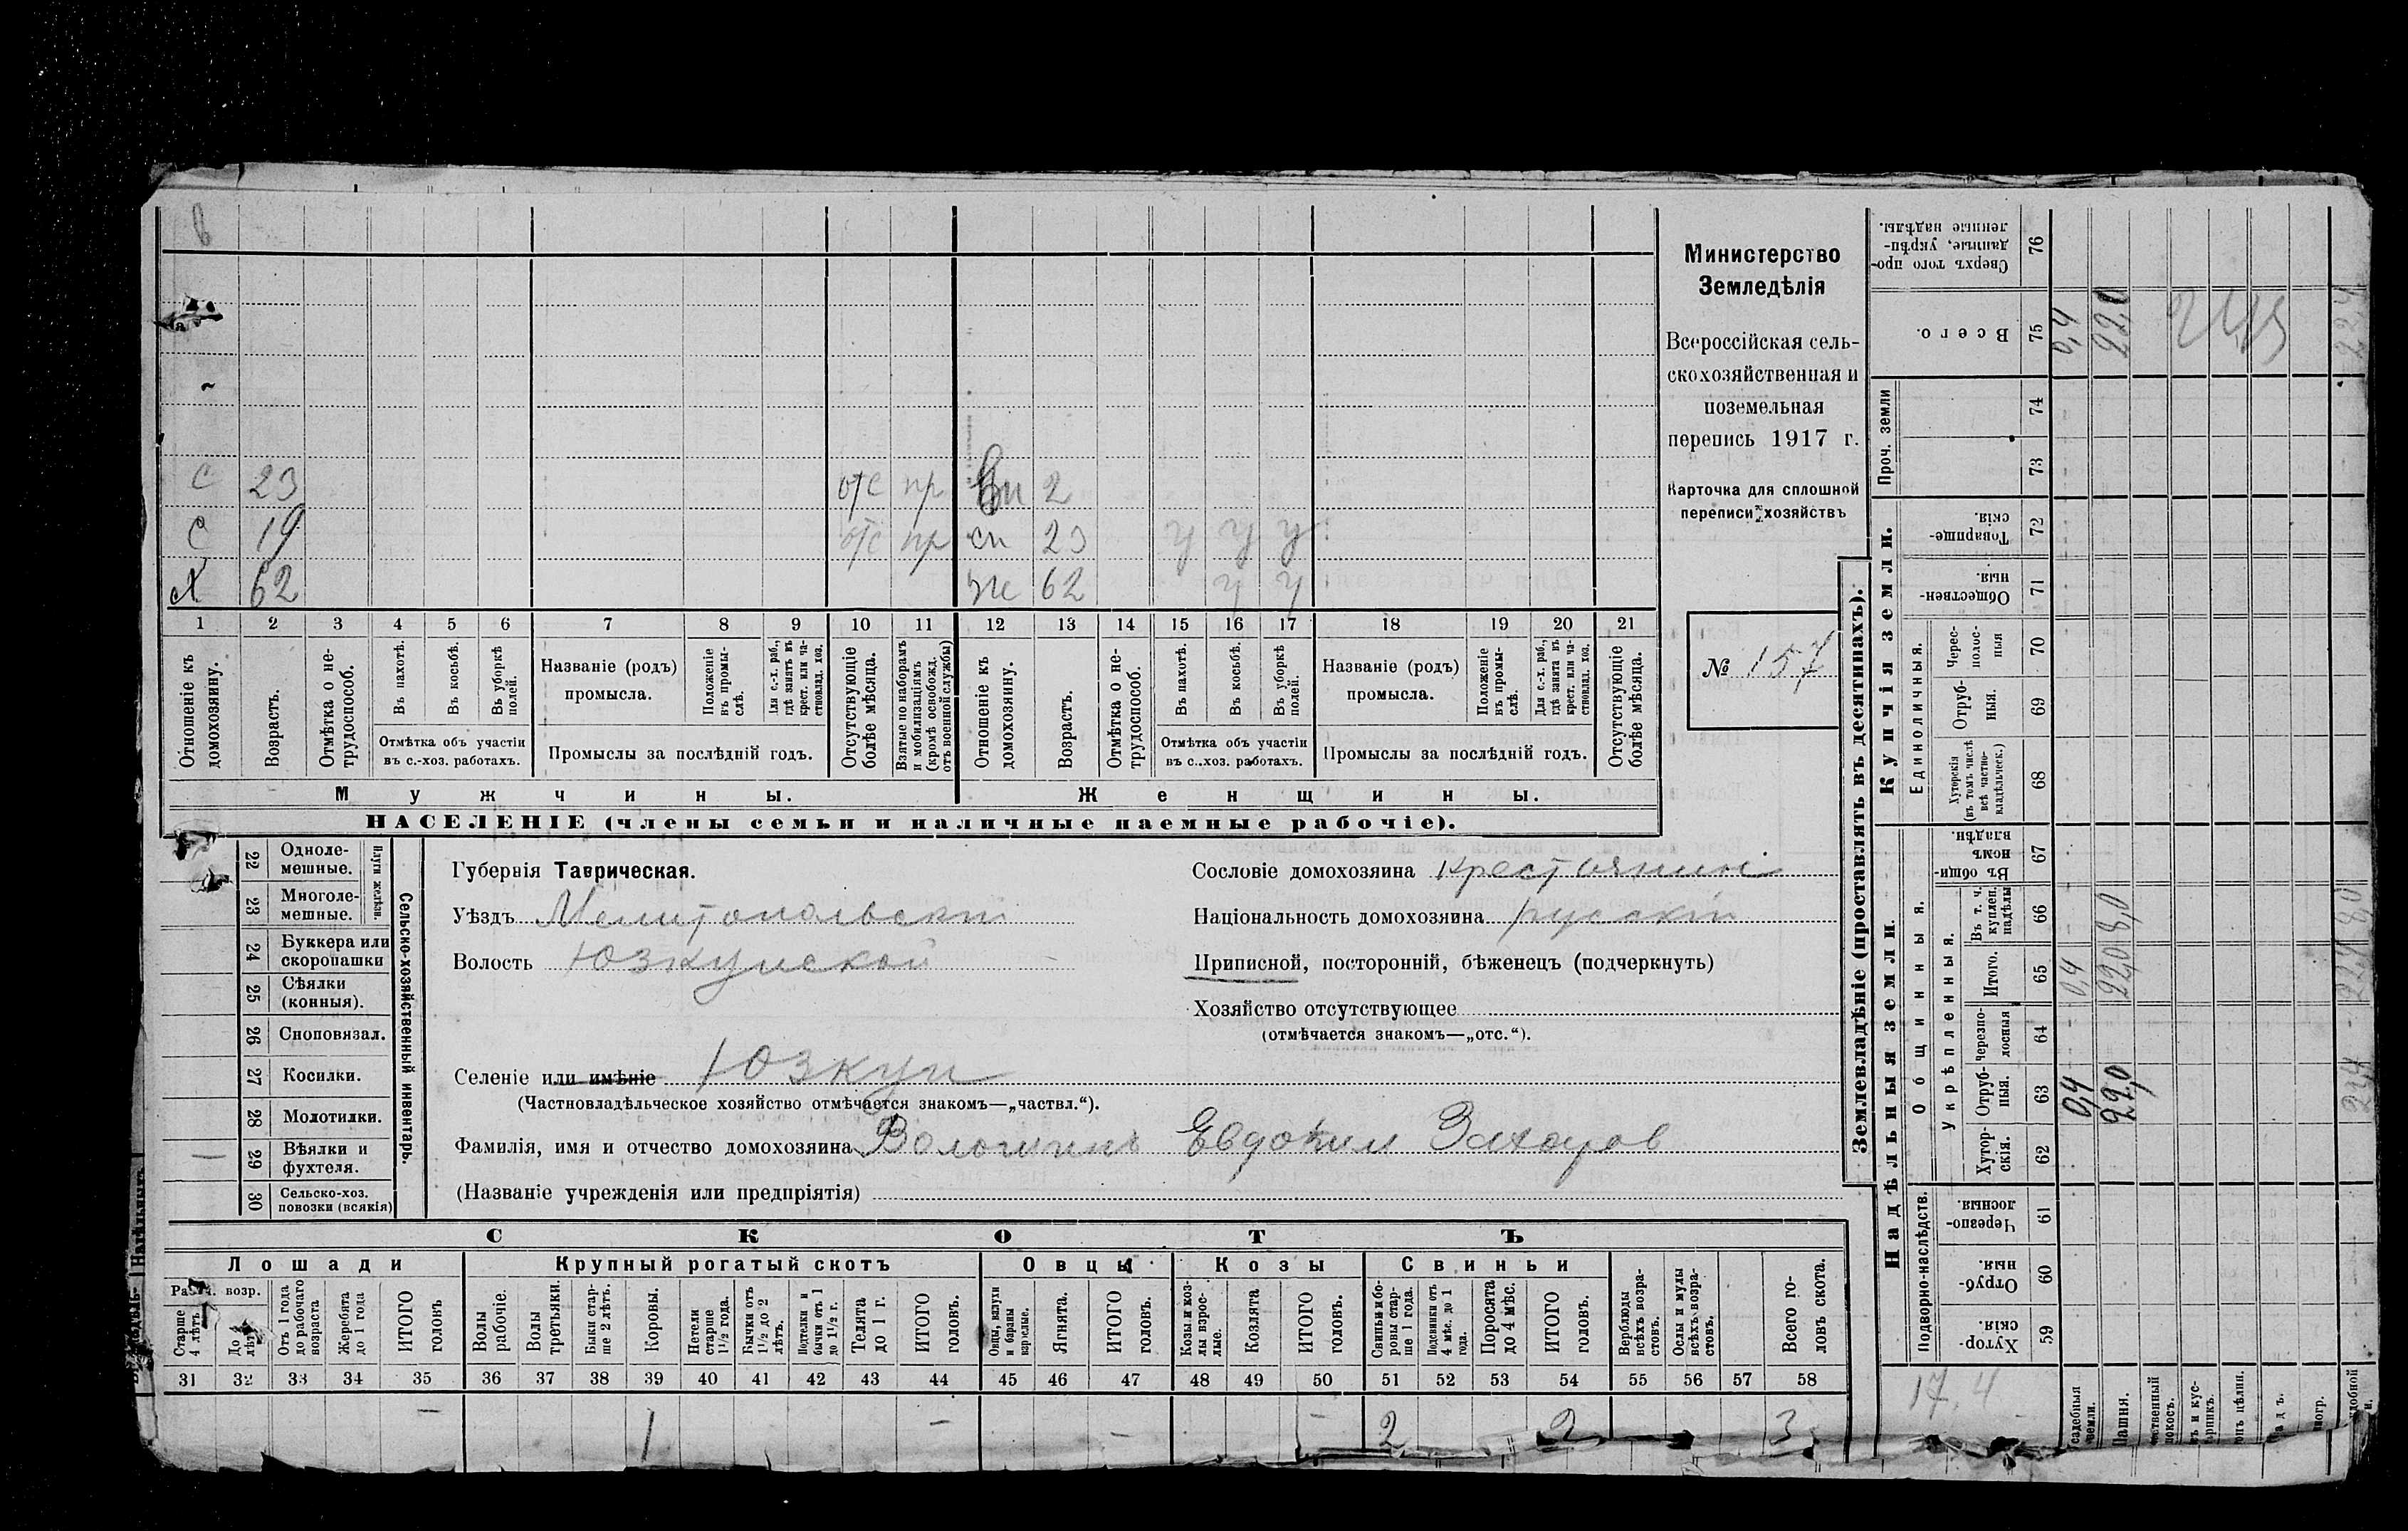 в
С 23 отс пр Вн 2
С 19 отс пр сн 23 у у у
Х 62 Ж 62 у у
1 2 3 4 5 6 7 8 9 10 11 12 13 14 15 16 17 18 19 20 21
Отношеніе къ домохозяину.
Возрастъ.
Отмѣтка о не-
трудоспособ.
Въ пахотѣ.
Въ косьбѣ.
Въ уборкѣ
полей.
Отмѣтка объ участіи
въ с.-хоз. работахъ.
Названіе (родъ)
промысла.
Положеніе
въ промы-
слѣ.
Для с.-х. раб.,
гдѣ занятъ въ
крест. или ча-
стновлад. хоз.
Промыслы за послѣдній годъ.
Отсутствующіе
болѣе мѣсяца.
Взятые по наборамъ
и мобилизаціямъ
(кромѣ освобожд.
отъ военной службы)
Отношеніе къ
домохозяину.
Возрастъ.
Отмѣтка о не-
трудоспособ.
Въ пахотѣ.
Въ косьбѣ.
Въ уборкѣ
полей.
Отмѣтка объ участіи
въ с.-хоз. работахъ.
Названіе (родъ)
промысла.
Положеніе
въ промы-
слѣ.
Для с.-х. раб.,
гдѣ занята въ
крест. или ча-
стновлад. хоз.
Промыслы за послѣдній годъ.
Отсутствующіе
болѣе мѣсяца.
Мужчины.
Женщины.
НАСЕЛЕНІЕ (члены семьи и наличные наемные рабочіе).
Министерство
Земледѣлія
Всероссійская сель-
скохозяйственная и
поземельная
перепись 1917 г.
Карточка для сплошной
переписи хозяйствъ
№ 157
22 Одноле-
мешные.
23 Многоле-
мешные.
Плуги желѣзн.
24 Буккера или
скоропашки
25 Сѣялки
(конныя).
26 Сноповязал.
27 Косилки.
28 Молотилки.
29 Вѣялки и
фухтеля.
30 Сельско-хоз.
повозки (всякія)
Сельско-хозяйственный инвентарь.
Губернія Таврическая.
Уѣздъ Мелитопольскій
Волость Юзкуйской
Селеніе или имѣніе Юзкуи
(Частновладѣльческое хозяйство отмѣчается знакомъ—„частвл.“).
Фамилія, имя и отчество домохозяина Волошинъ Евдоким Захаров
(Названіе учрежденія или предпріятія)
Сословіе домохозяина крестьянин
Національность домохозяина русскій
Приписной, посторонній, бѣженецъ (подчеркнуть)
Хозяйство отсутствующее
(отмѣчается знакомъ—„отс.“).
СКОТЪ
Лошади
Крупный рогатый скотъ
Овцы
Козы
Свиньи
возр.
Старше
4 лѣтъ
Отъ 1 года
до рабочаго
возраста
Жеребята
до 1 года
ИТОГО
головъ
Волы
рабочіе.
Волы
третьяки.
Быки стар-
ше 2 лѣтъ.
Коровы.
Нетели
старше
1½ года.
Бычки отъ
1½ до 2
лѣтъ.
Подтелки и
бычки отъ 1
до 1½ г.
Телята
до 1 г.
ИТОГО
головъ.
Овцы, валухи
и бараны
взрослые.
Ягнята.
ИТОГО
головъ.
Козы и коз-
лы взрос-
лые.
Козлята
ИТОГО
головъ.
Свиньи и бо-
ровы стар-
ше 1 года.
Подсвинки отъ
4 мѣс. до 1
года.
Поросята
до 4 мѣс.
ИТОГО
головъ.
Верблюды
всѣхъ возра-
стовъ.
Ослы и мулы
всѣхъ возра-
стовъ.
Всего го-
ловъ скота.
31 32 33 34 35 36 37 38 39 40 41 42 43 44 45 46 47 48 49 50 51 52 53 54 55 56 57 58
— 1 — — — 2 2 3
Землевладѣніе (проставлять въ десятинахъ).
Надѣльныя земли.
Купчія земли.
Проч. земли
Подворно-наслѣдств.
Общинныя.
Укрѣпленныя.
Единоличныя.
Хутор-
скія. 59
Отруб-
ныя. 60
Черезпо-
лосныя. 61
Хутор-
скія. 62
Отруб-
ныя. 63
Черезпо-
лосныя 64
Итого. 65
Въ т. ч.
куплен.
надѣлы 66
Въ общин-
номъ
владѣн. 67
Хуторскія
(въ томъ числѣ
всѣ частно-
владѣльческ.) 68
Отруб-
ныя. 69
Черес-
полос-
ныя 70
Обществен-
ныя. 71
Товарище-
скія. 72
73
74
Всего. 75
Сверхъ того про-
данные, укрѣп-
ленные надѣлы. 76
17,4
Пашня.
0,4 0,4 0,4
22,0 22,0 8,0 22,0
22,4 22,4 8,0 22,4